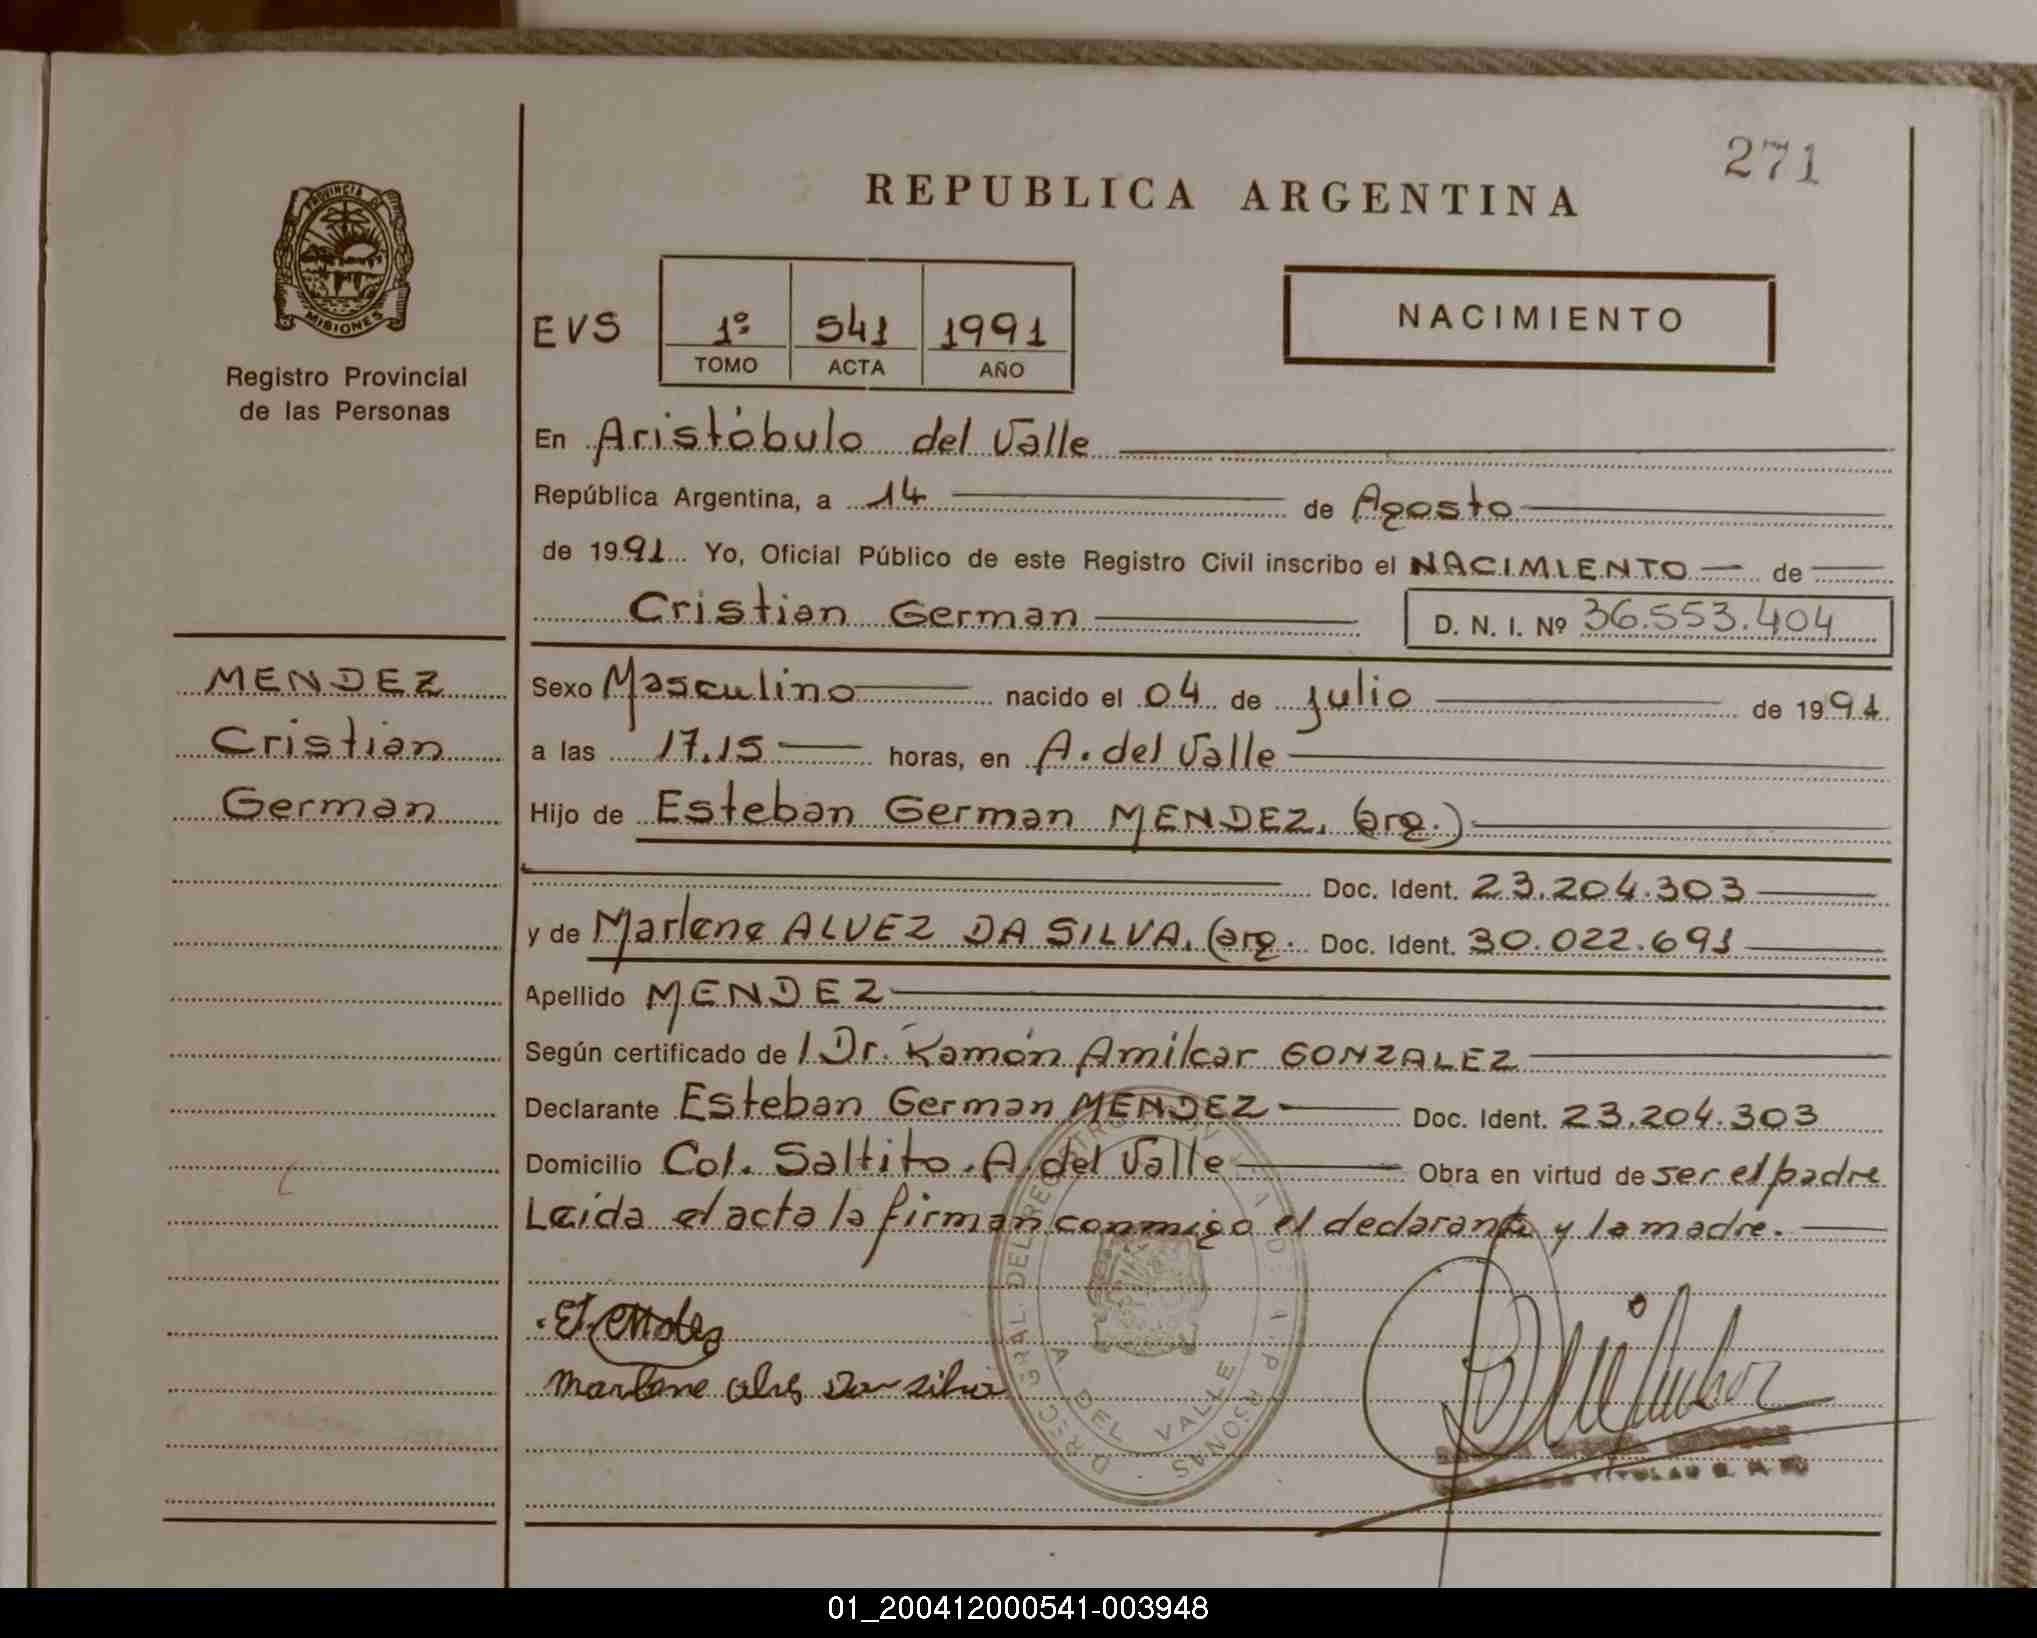 271
REPUBLICA ARGENTINA
PROVINCIA DE
MISIONES
Registro Provincial
de las Personas
EVS
1º 541 1991
TOMO ACTA AÑO
NACIMIENTO
En Aristóbulo del Valle
República Argentina, a 14 de Agosto
de 1991 Yo, Oficial Público de este Registro Civil inscribo el NACIMIENTO de
Cristian German D. N. I. Nº 36.553.404
MENDEZ
Cristian
German
Sexo Masculino nacido el 04 de julio de 1991
a las 17.15 horas, en A. del Valle
Hijo de Esteban German MENDEZ, (arg.)
Doc. Ident. 23.204.303
y de Marlene ALVEZ DA SILVA, (arg. Doc. Ident. 30.022.691
Apellido MENDEZ
Según certificado de l Dr. Ramón Amilcar GONZALEZ
Declarante Esteban German MENDEZ Doc. Ident. 23.204.303
Domicilio Col. Saltito. A. del Valle Obra en virtud de ser el padre
Leída el acta la firman conmigo el declarante y la madre.
DEL VALLE
01_200412000541-003948